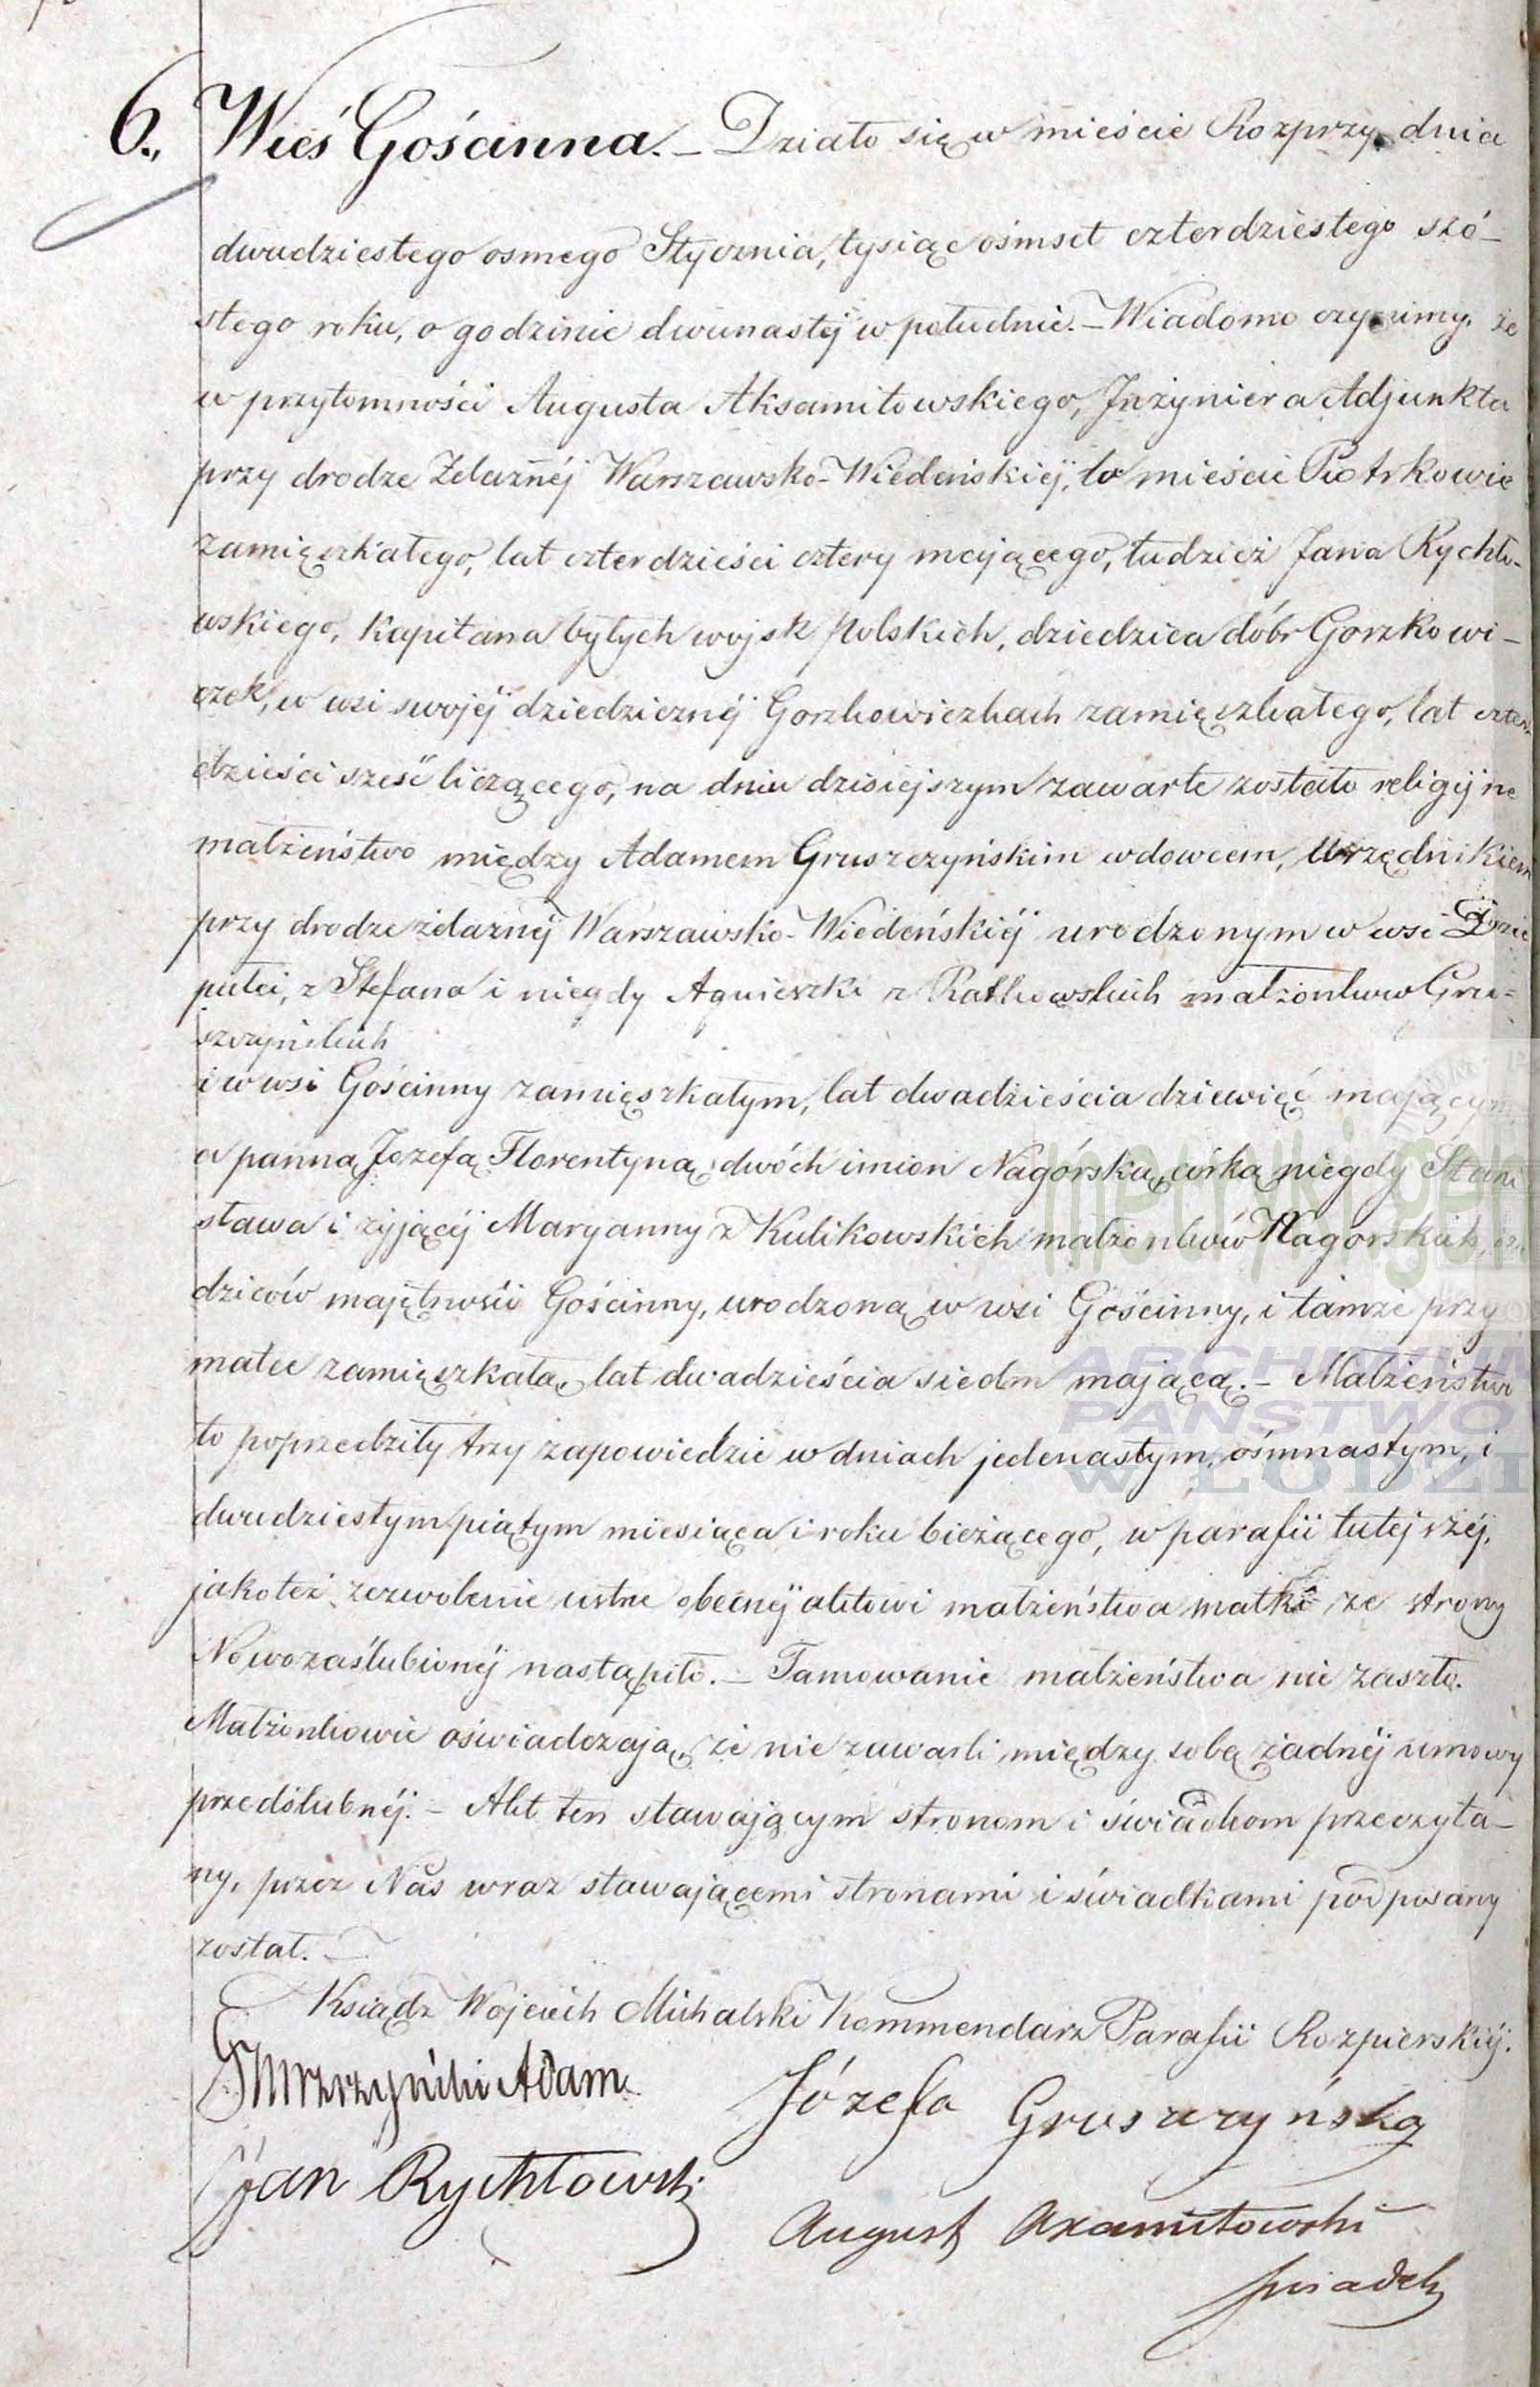 6., Wieś Gościnna. – Działo się w mieście Rozprzy dnia
dwudziestego osmego Stycznia, tysiąc ośmset czterdziestego szó–
stego roku, o godzinie dwunastéj w południe. – Wiadomo czynimy, że
w przytomności Augusta Aksamitowskiego, Inżyniera Adjunkta
przy drodze Żelaznéj Warszawsko-Wiedeńskiéj, w mieście Piotrkowie
zamięszkałego, lat czterdzieści cztery mającego, tudzież Jana Rychło–
wskiego, Kapitana byłych wojsk polskich, dziedzica dóbr Gorzkowi–
czek, w wsi swojéj dziedzicznéj Gorzkowiczkach zamięszkałego, lat czter–
dzieści sześć liczącego, na dniu dzisiejszym zawarte zostało religijne
małżeństwo między Adamem Gruszczyńskim wdowcem, Urzędnikiem
przy drodze żelaznéj Warszawsko-Wiedeńskiéj urodzonym w wsi
z Stefana i niegdy Agnieszki z małżonków Gru–
szczyńskich
i w wsi Gościnny zamięszkałym, lat dwadzieścia dziewięć mającym,
a panną Jozefą Florentyną dwóch imion Nagórską, córką niegdy Stani
sława i żyjącéj Maryanny z Kulikowskich małżonków Nagorskich,
dziców majętności Gościnny, urodzoną w wsi Gościnny, i tamże przy
matce zamięszkałą, lat dwadzieścia siedm mającą. – Małżeństwo
to poprzedziły trzy zapowiedzie w dniach jedenastym, ośmnastym, i
dwudziestym piątym miesiąca i roku bieżącego, w parafii tutejszéj,
jakoteż zezwolenie ustne obecnéj aktowi małżeństwa matki ze strony
Nowozaślubionéj nastąpiło. – Tamowanie małżeństwa nie zaszło.
Małżonkowie oświadczają, że nie zawarli między sobą żadnéj umowy
przedślubnéj. – Akt ten stawającym stronom i świadkom przeczyta–
ny, przez Nas wraz stawającemi stronami i świadkami podpisany
został. –
Ksiądz Wojciech Michalski Kommendarz Parafii Rozpierskiéj.
Gruszczyński Adam
Józefa Gruszczyńska
Jan Rychłowski
August Axamitowski
świadek
metryki.gen
ARCHIWUM
PAŃSTWO
W ŁODZI